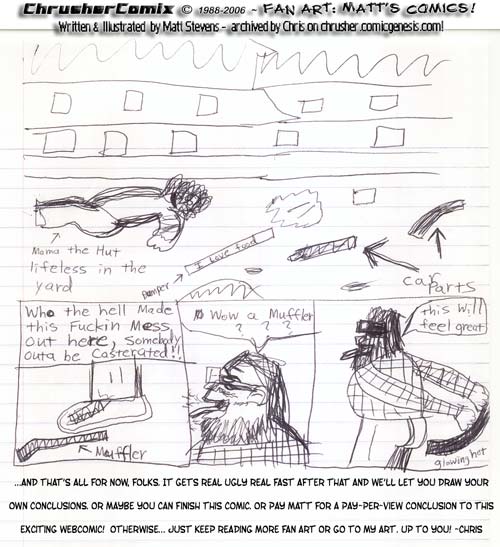 ChrusherComix © 1988-2006 ~ FAN ART: MATT'S COMICS!
Written & Illustrated by Matt Stevens - archived by Chris on chrusher.comicgenesis.com!
Mama the Hut
lifeless in the
yard
Bumper
I Love food
car
Parts
Who the hell Made
this Fuckin Mess
Out here, Somebody
Outa be Casterated!!
Muffler
Wow a Muffler
? ? ?
this will
feel great
glowing hot
...AND THAT'S ALL FOR NOW, FOLKS. IT GETS REAL UGLY REAL FAST AFTER THAT AND WE'LL LET YOU DRAW YOUR
OWN CONCLUSIONS. OR MAYBE YOU CAN FINISH THIS COMIC. OR PAY MATT FOR A PAY-PER-VIEW CONCLUSION TO THIS
EXCITING WEBCOMIC! OTHERWISE... JUST KEEP READING MORE FAN ART OR GO TO MY ART. UP TO YOU! -CHRIS